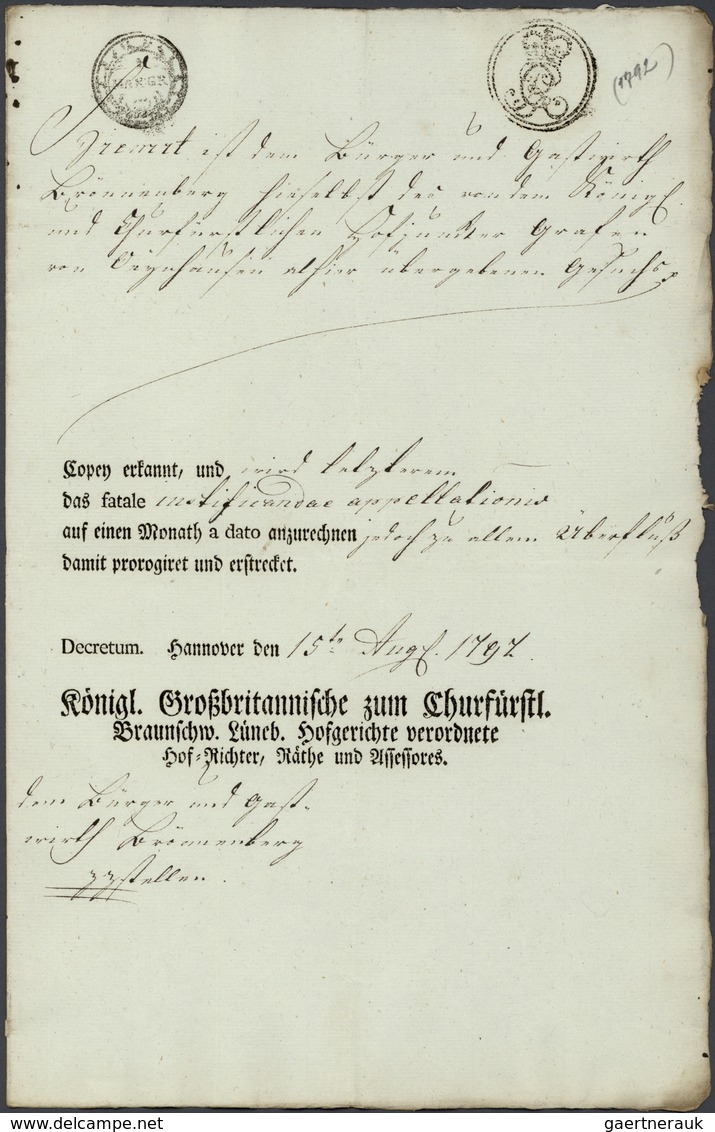 (1792)
ist dem Bürger und Gastwirth
Brönnenberg hieselbst des von dem Königl.
und Churfürstlichen Hofjuncker Grafen
von Oeynhausen alhier übergebenen Gesuchs
Copey erkannt, und wird letzterem
das fatale justificandae appellationis
auf einen Monath a dato anzurechnen jedoch zu allem Überfluß
damit prorogiret und erstrecket.
Decretum. Hannover den 15ten Aug. 1792.
Königl. Großbritannische zum Churfürstl.
Braunschw. Lüneb. Hofgerichte verordnete
Hof-Richter, Räthe und Assessores.
dem Bürger und Gast-
wirth Brönnenberg
zuzustellen.
gaertnerauk
www.delcampe.net